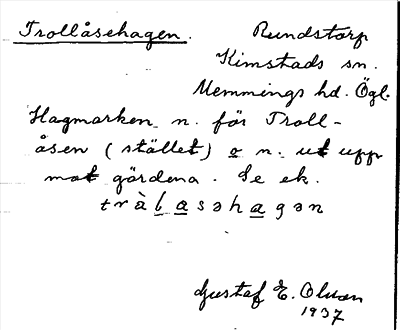 Trollåsehagen.
Rundstorp
Kimstads sn.
Memmings hd. Ögl.
Hagmarken n. för Troll-
åsen (stället) o n. ut upp
mot gärdena. Se ek.
tràlasəhagən
Gustaf E. Olsson
1937